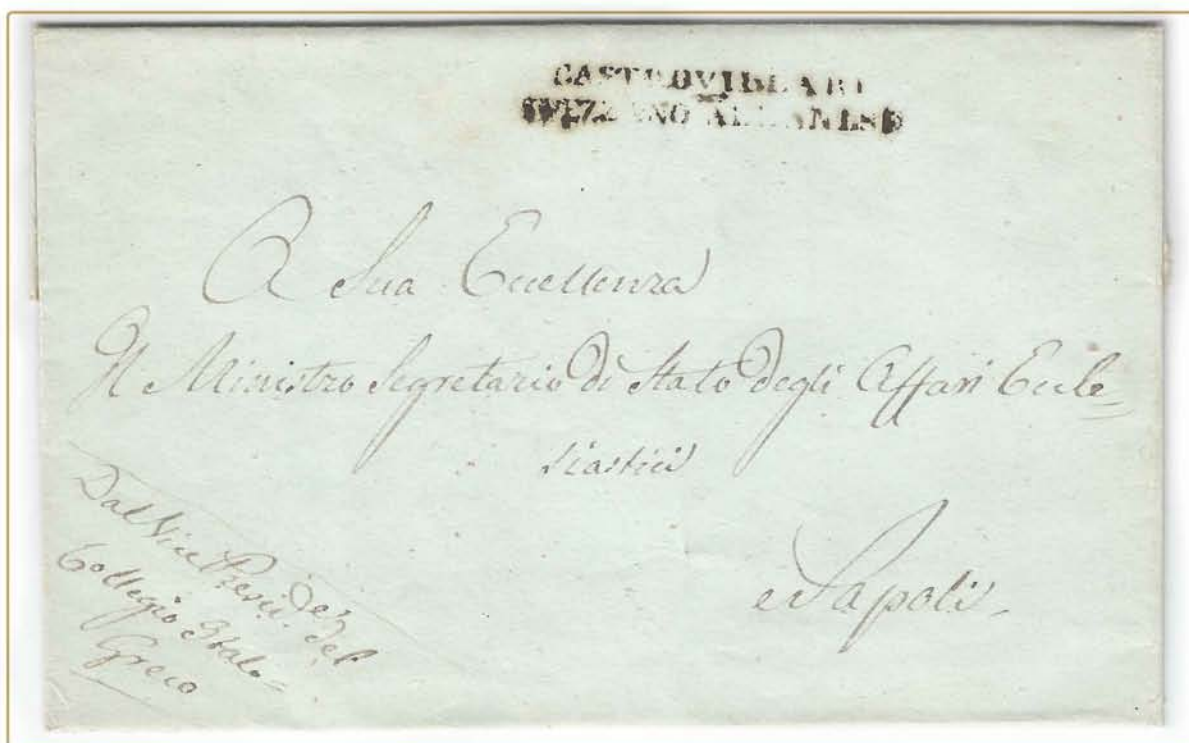 CASTROVILLARI
SPEZZANO ALBANESE
A Sua Eccellenza
Il Ministro Segretario di Stato degli Affari Eccle=
siastici
Napoli
Dal Vice Presid.e del
Collegio Italo=
Greco